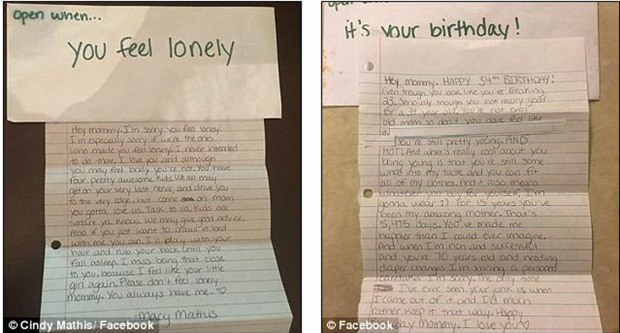 open when...
you feel lonely
Hey mommy. I'm sorry you feel lonely.
I'm especially sorry if we're the ones
who made you feel lonely. I never intended
to do that. I love you and although
you may feel lonely you're not. You have
four pretty awesome kids. We all may
get on your very last nerve and drive you
to the very edge, but come on mom
you gotta love us. Talk to us. Kids are
smart you know. We may give good advice.
Also if you just want to crawl in bed
with me you can. I'll play with your
hair and rub your back until you
fall asleep. I miss being that close
to you, because I feel like your little
girl again. Please don't feel lonely
mommy. You always have me. ♡
-Mary Mathis
© Cindy Mathis/ Facebook
open when...
it's your birthday!
Hey, mommy. HAPPY 34th BIRTHDAY!
Even though you look like you're freaking
23. Seriously though you look really good
for a 34 year old. You're not even
old mom so don't you dare feel like
it!
You're still pretty young. AND
HOT! And what's really cool about you
being young is that you're still some
what into my taste and you can fit
all of my clothes. And it also means
whatever you buy for yourself I'm
gonna wear :) For 15 years you've
been my amazing mother. That's
5,475 days. You've made me
happier than I could ever imagine.
And when I'm rich and successful
and you're 70 years old and needing
diaper changes I'm hiring a personal
caretaker. I'm sorry. The only time
I've ever seen your junk is when
I came out of it and I'd much
rather keep it that way. Happy
day Mommy. I love you ♡
© Facebook